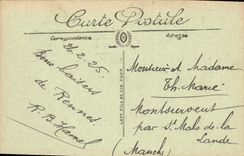 Carte Postale
Correspondance
Adresse
26.2.25
Bons baisers
de Rennes
R. B. Hamel
Monsieur et Madame
Th. Marie
Montsurvent
par St Malo de la
Lande
(Manche)